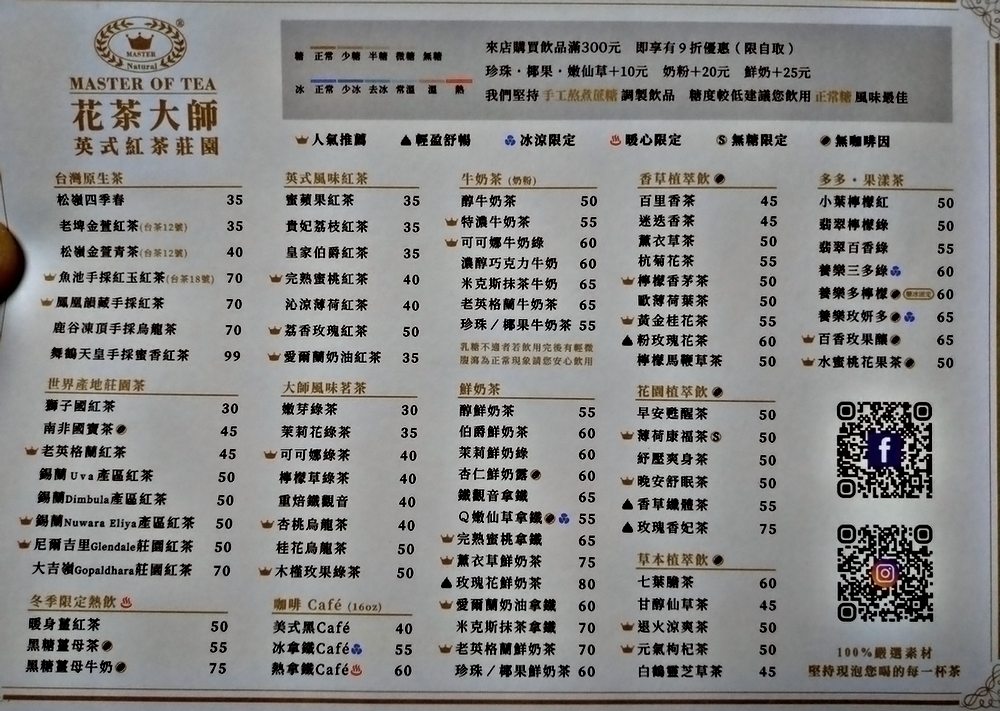 MASTER
Natural
MASTER OF TEA
花茶大師
英式紅茶莊園
糖 正常 少糖 半糖 微糖 無糖
冰 正常 少冰 去冰 常溫 溫 熱
來店購買飲品滿300元 即享有9折優惠(限自取)
珍珠・椰果・嫩仙草+10元 奶粉+20元 鮮奶+25元
我們堅持手工熬煮蔗糖調製飲品 糖度較低建議您飲用正常糖風味最佳
人氣推薦 輕盈舒暢 冰涼限定 暖心限定 Ⓢ無糖限定 無咖啡因
台灣原生茶
松嶺四季春 35
老埤金萱紅茶(台茶12號) 35
松嶺金萱青茶(台茶12號) 40
魚池手採紅玉紅茶(台茶18號) 70
鳳凰韻藏手採紅茶 70
鹿谷凍頂手採烏龍茶 70
舞鶴天皇手採蜜香紅茶 99
世界產地莊園茶
獅子國紅茶 30
南非國寶茶 45
老英格蘭紅茶 45
錫蘭Uva產區紅茶 50
錫蘭Dimbula產區紅茶 50
錫蘭Nuwara Eliya產區紅茶 50
尼爾吉里Glendale莊園紅茶 50
大吉嶺Gopaldhara莊園紅茶 70
冬季限定熱飲
暖身薑紅茶 50
黑糖薑母茶 55
黑糖薑母牛奶 75
英式風味紅茶
蜜蘋果紅茶 35
貴妃荔枝紅茶 35
皇家伯爵紅茶 35
完熟蜜桃紅茶 40
沁涼薄荷紅茶 40
荔香玫瑰紅茶 50
愛爾蘭奶油紅茶 35
大師風味茗茶
嫩芽綠茶 30
茉莉花綠茶 35
可可娜綠茶 40
檸檬草綠茶 40
重焙鐵觀音 40
杏桃烏龍茶 40
桂花烏龍茶 50
木槿玫果綠茶 50
咖啡 Café (16oz)
美式黑Café 40
冰拿鐵Café 55
熱拿鐵Café 60
牛奶茶(奶粉)
醇牛奶茶 50
特濃牛奶茶 55
可可娜牛奶綠 60
濃醇巧克力牛奶 60
米克斯抹茶牛奶 65
老英格蘭牛奶茶 65
珍珠/椰果牛奶茶 55
乳糖不適者若飲用完後有輕微
腹瀉為正常現象請您安心飲用
鮮奶茶
醇鮮奶茶 55
伯爵鮮奶茶 60
茉莉鮮奶綠 60
杏仁鮮奶露 60
鐵觀音拿鐵 65
Q嫩仙草拿鐵 55
完熟蜜桃拿鐵 65
薰衣草鮮奶茶 75
玫瑰花鮮奶茶 80
愛爾蘭奶油拿鐵 60
米克斯抹茶拿鐵 70
老英格蘭鮮奶茶 70
珍珠/椰果鮮奶茶 60
香草植萃飲
百里香茶 45
迷迭香茶 45
薰衣草茶 50
杭菊花茶 55
檸檬香茅茶 50
歐薄荷葉茶 50
黃金桂花茶 55
粉玫瑰花茶 60
檸檬馬鞭草茶 50
花園植萃飲
早安甦醒茶 50
薄荷康福茶Ⓢ 50
紓壓爽身茶 50
晚安舒眠茶 50
香草纖體茶 55
玫瑰香妃茶 75
草本植萃飲
七葉膽茶 60
甘醇仙草茶 45
退火涼爽茶 50
元氣枸杞茶 50
白鶴靈芝草茶 45
多多・果漾茶
小葉檸檬紅 50
翡翠檸檬綠 50
翡翠百香綠 55
養樂三多綠 60
養樂多檸檬 60
養樂玫妍多 65
百香玫果釀 65
水蜜桃花果茶 50
100%嚴選素材
堅持現泡您喝的每一杯茶